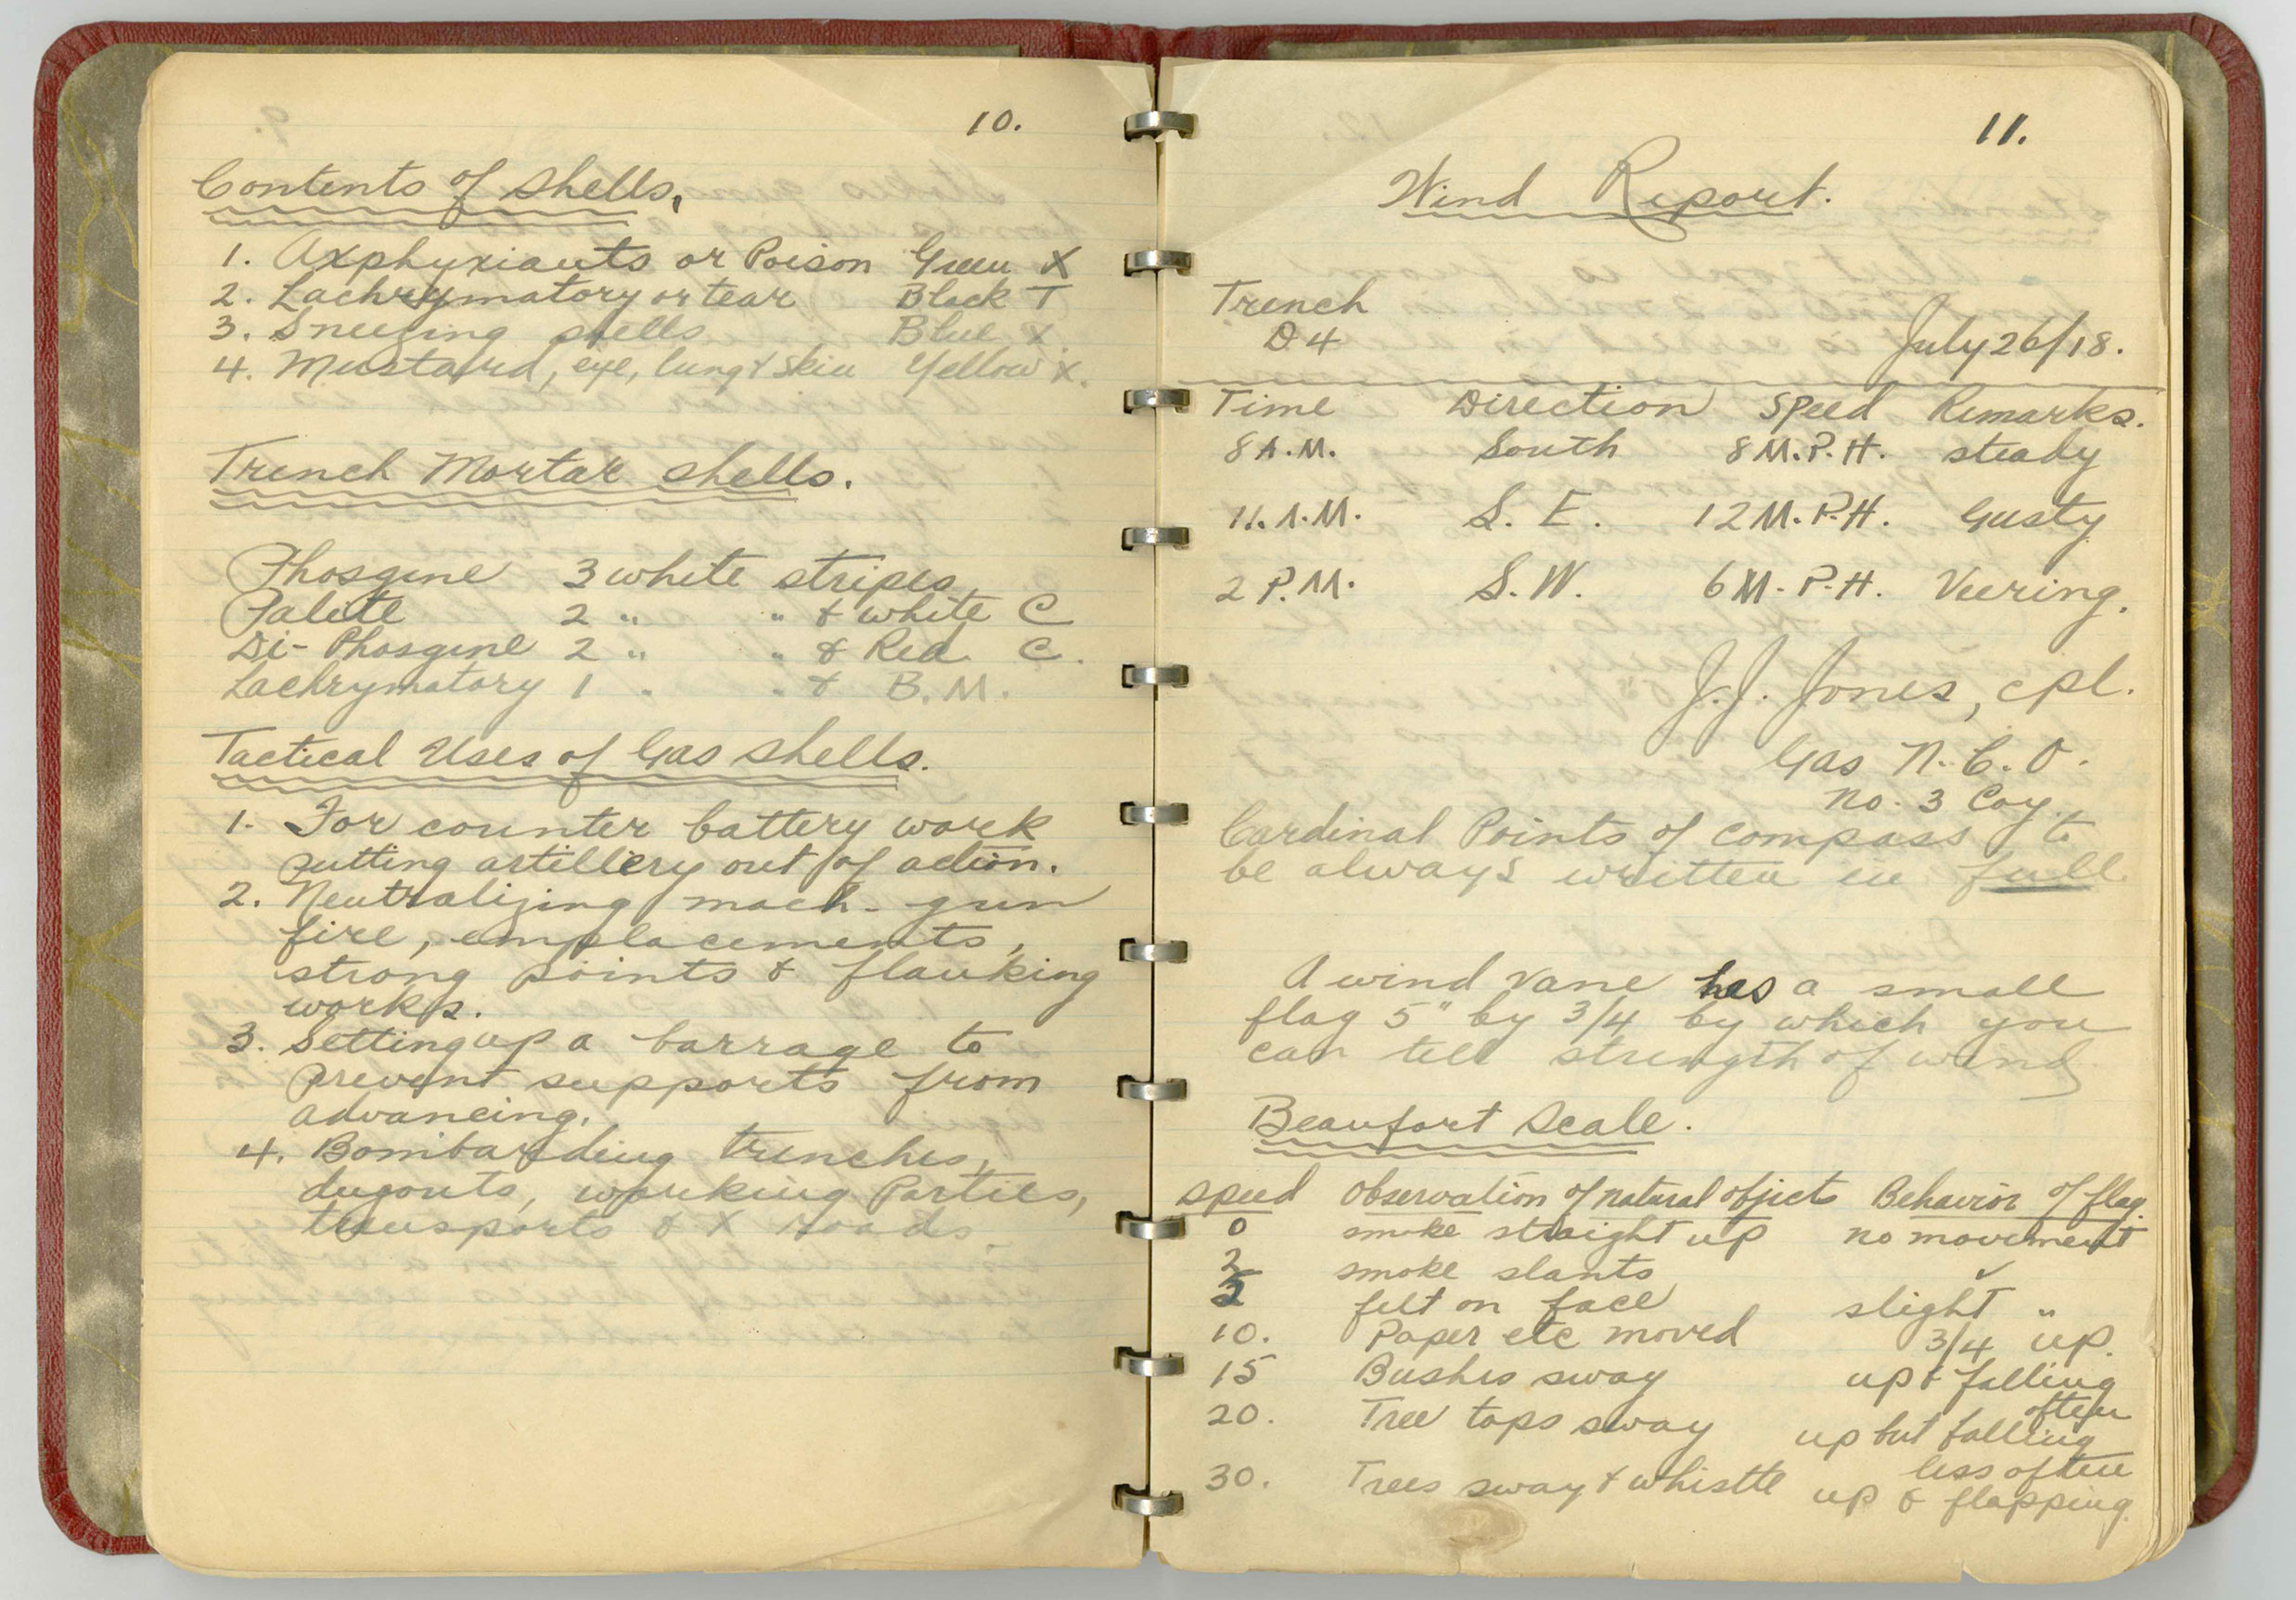 10.
Contents of Shells.
1. Axphyxiants or Poison Green X
2. Lachrymatory or tear Black T
3. Sneezing shells Blue X
4. Mustard, eye, lung & skin Yellow X.
Trench Mortar Shells.
Phosgene 3 white stripes
Palite 2 " " & white C
Di-Phosgene 2 " " & Red C.
Lachrymatory 1 " " & B.M.
Tactical Uses of Gas Shells.
1. For counter battery work
putting artillery out of action.
2. Neutralizing mach-gun
fire, emplacements,
strong points & flanking
works.
3. Setting up a barrage to
prevent supports from
advancing.
4. Bombarding trenches,
dugouts, working Parties,
transports & X roads.
11.
Wind Report.
Trench
D4
July 26/18.
Time Direction Speed Remarks.
8 A.M. South 8 M.P.H. steady
11. A.M. S. E. 12 M.P.H. Gusty
2 P.M. S.W. 6 M.P.H. Veering.
J.J. Jones, cpl.
Gas N.C.O.
No. 3 Coy.
Cardinal Points of compass to
be always written in full
A wind vane has a small
flag 5" by 3/4 by which you
can tell strength of wind
Beaufort Scale.
Speed Observation of natural objects Behavior of flag.
0 smoke straight up no movement
2 smoke slants ✓
5 felt on face slight "
10. Paper etc moved 3/4 up.
15 Bushes sway up & falling
often
20. Tree tops sway up but falling
less often
30. Trees sway & whistle up & flapping.